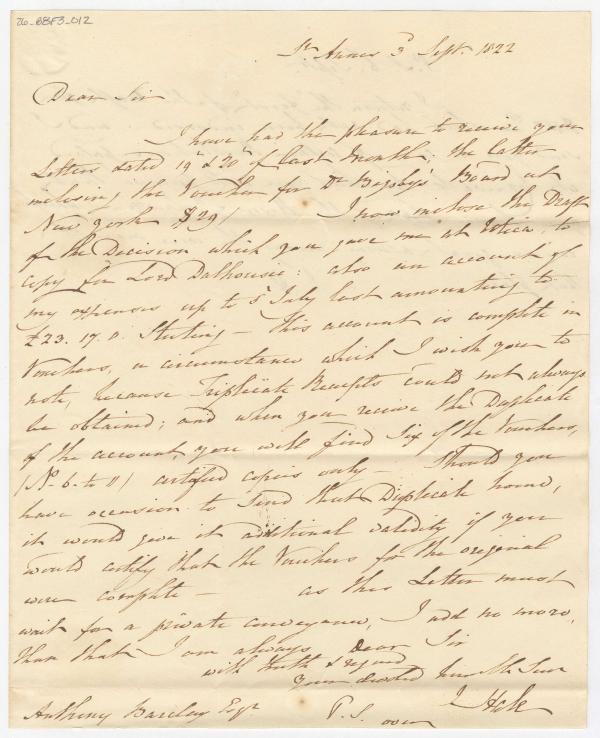 26_BBF3_012
St Annes 3d Sept. 1822
Dear Sir
I have had the pleasure to receive your
Letters dated 19 & 20th of last Month; the latter
inclosing the Voucher for Dr Bigsby's Board at
New York $29/ I now inclose the Draft
of the Decision which you gave me at Utica, to
copy for Lord Dalhousie: also an account of
my expenses up to 5 July last amounting to
£23. 17. 0. Sterling — This account is complete in
Vouchers, a circumstance which I wish you to
note, because Triplicate Receipts could not always
be obtained; and when you receive the Duplicate
of the account, you will find Six of the Vouchers,
(No 6. to 11) certified copies only — Should you
have occasion to send that Duplicate home,
it would give it additional validity if you
would certify that the Vouchers for the original
were complete — as this Letter must
wait for a private conveyance, I add no more,
than that I am always Dear Sir
with truth & regard
Your devoted humble Serv
J Hale
Anthony Barclay Esqr
P.S. over